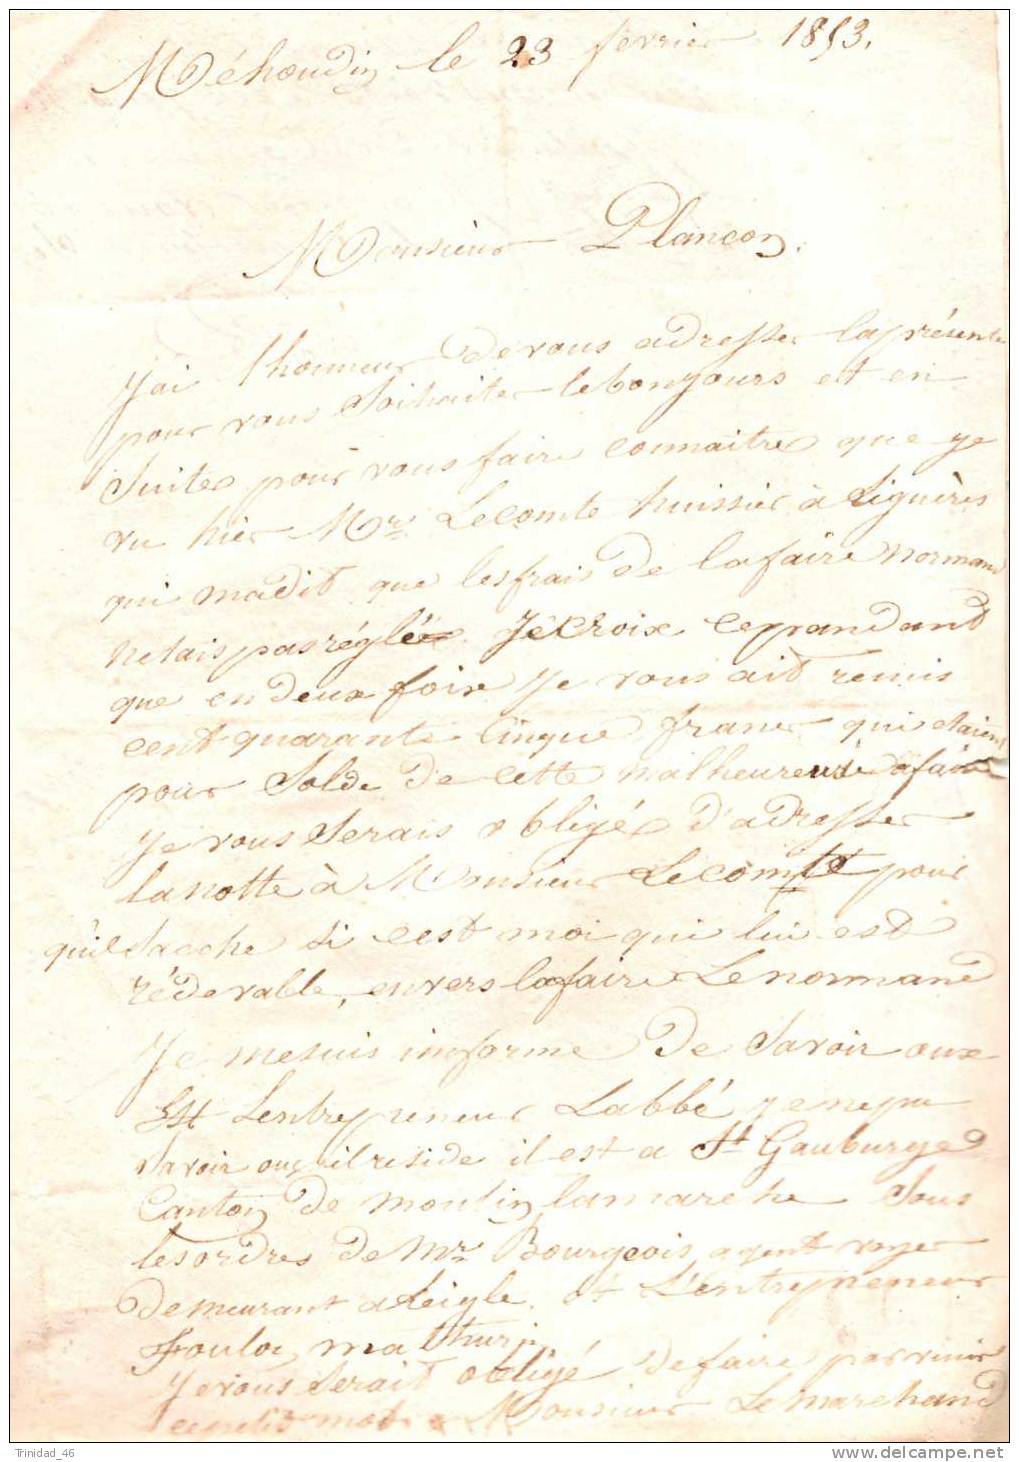 Méhoudin le 23 fevrier 1853.
Monsieur Plancon.
J'ai l'honneur de vous adresser la présente
pour vous Soihaiter le bonjours et en
Suite pour vous faire connaitre que je
vu hier Mr. Lecomte huissier à Lignères
qui madit que les frais de lafaire normand
netais pas réglée. Je croix cepandant
que en deux foix Je vous ait remis
cent quarante cinque franc qui etaient
pour Solde de cette malheureuse afaire
Je vous Serais obligé d'adresser
la notte à Monsieur Lecomte pour
qu'il Sache Si cest moi qui lui est
rédevable, envers lafaire Lenormand
Je mesuis informé de Savoir aux
Lentrepreneur Labbé je ne pu
Savoir ou qu'il reside il est a St Gauburge
Canton de moulin lamarche Sous
les ordres de Mr. Bourgeois, agent voyer
demeurant a Leigle. L'entrepreneur
Foulon mathurin
Je vous Serait obligé de faire parvenir
ce petit mot a Monsieur Lemarchand
Trinidad_46
www.delcampe.net